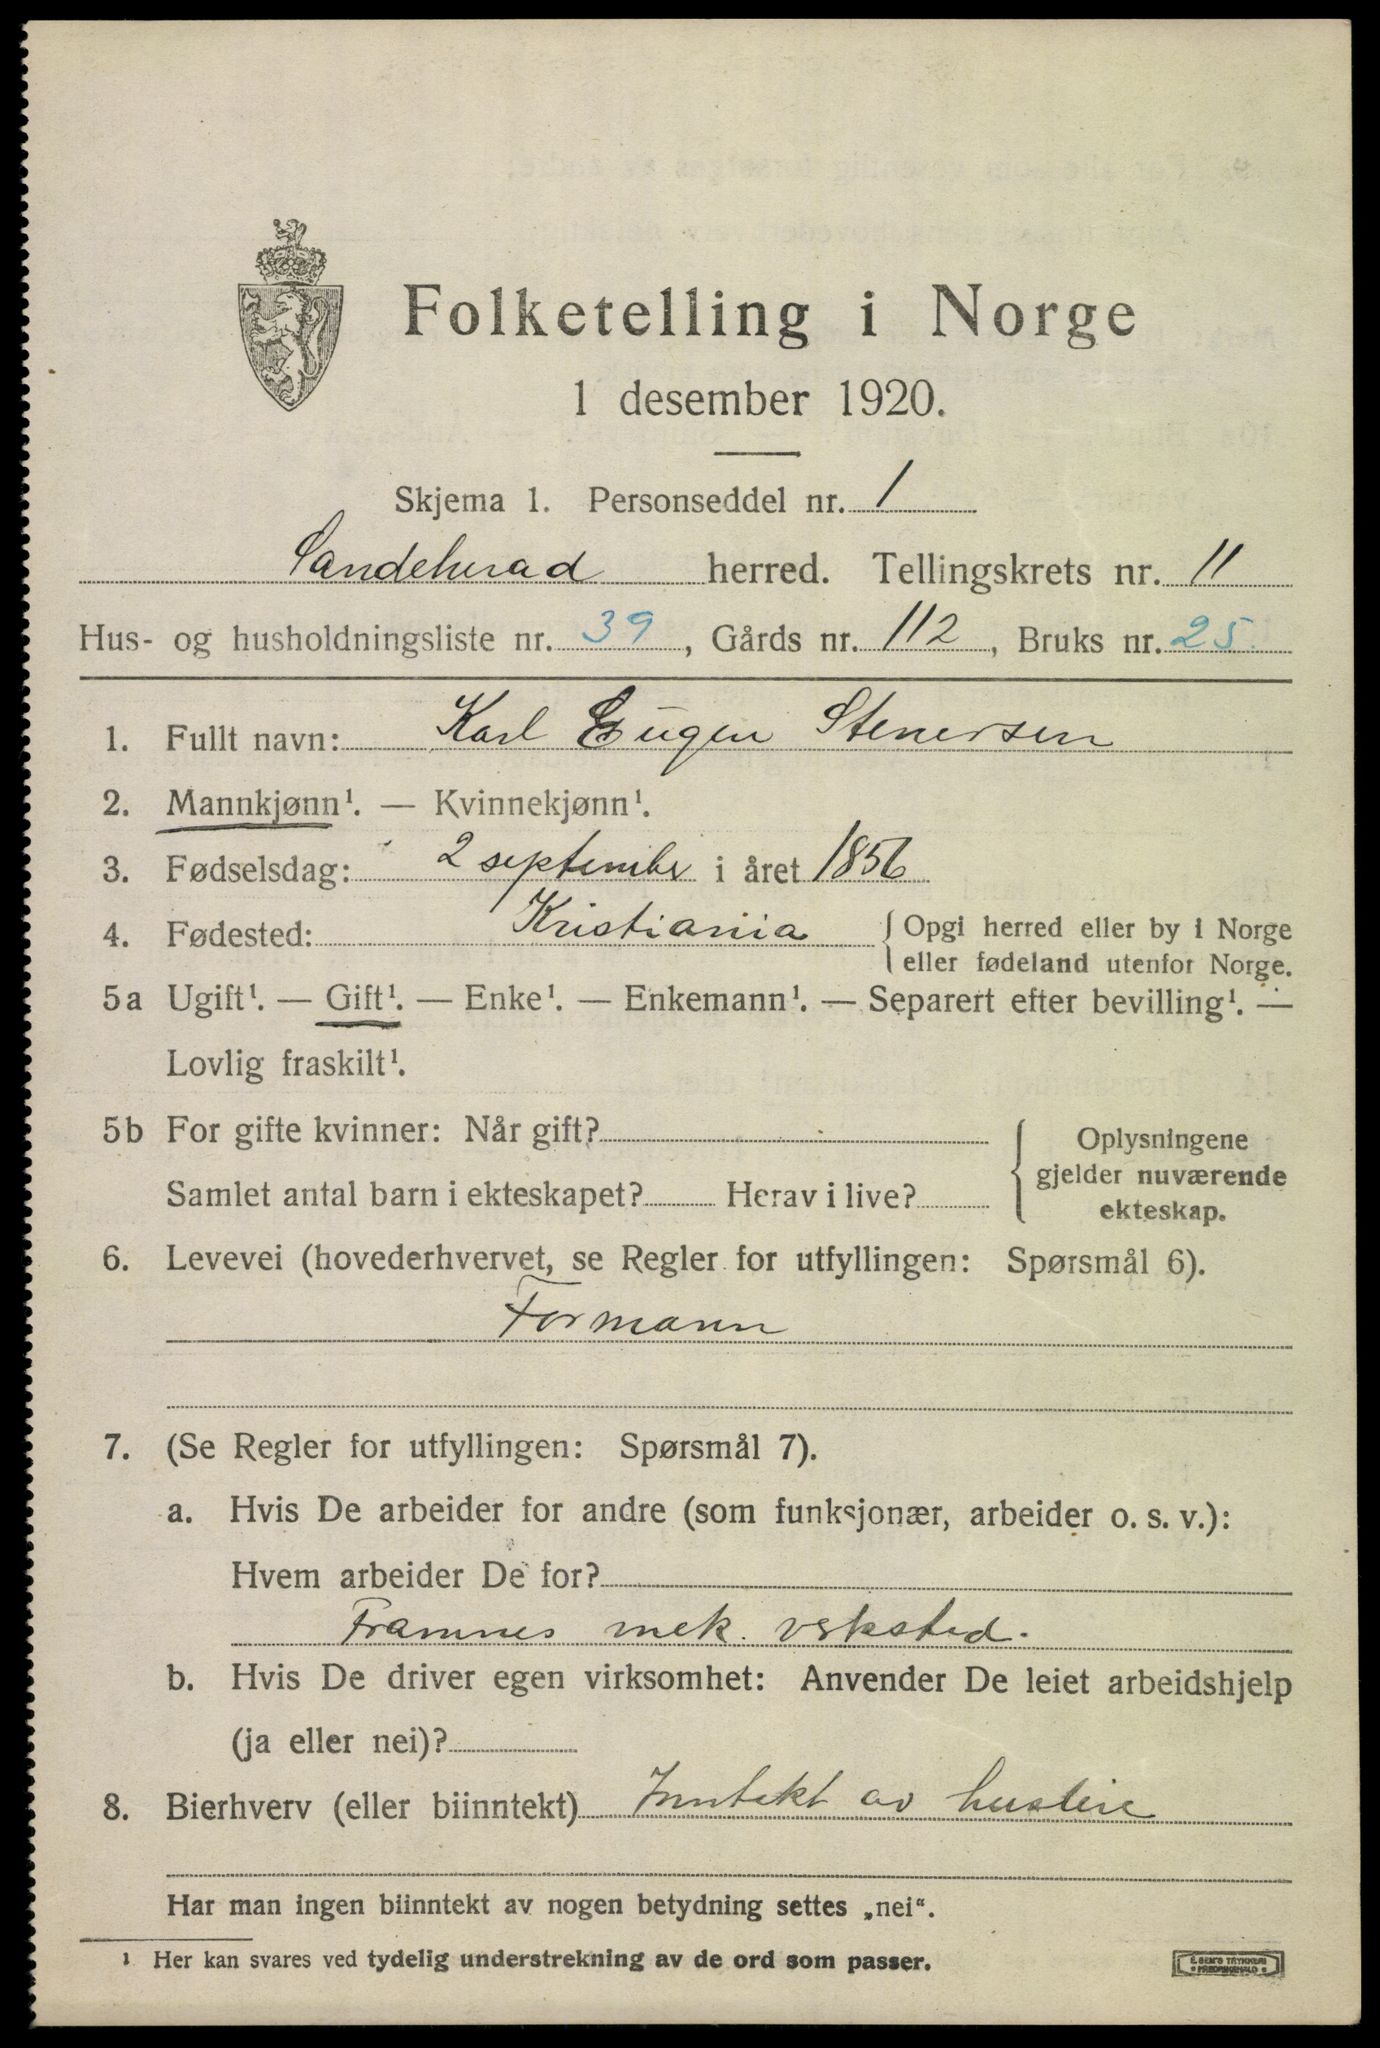 Folketelling i Norge
1 desember 1920.
Skjema 1. Personseddel nr. 1
Sandeherad herred. Tellingskrets nr. 11
Hus- og husholdningsliste nr. 39, Gårds nr. 112, Bruks nr. 25.
1. Fullt navn: Karl Eugen Stenersen
2. Mannkjønn¹. — Kvinnekjønn¹.
3. Fødselsdag: 2 september i året 1856
4. Fødested: Kristiania { Opgi herred eller by i Norge
eller fødeland utenfor Norge.
5a Ugift¹. — Gift¹. — Enke¹. — Enkemann¹. — Separert efter bevilling¹. —
Lovlig fraskilt¹.
5b For gifte kvinner: Når gift?
Samlet antal barn i ekteskapet? Herav i live?
{ Oplysningene
gjelder nuværende
ekteskap.
6. Levevei (hovederhvervet, se Regler for utfyllingen: Spørsmål 6).
Formann
7. (Se Regler for utfyllingen: Spørsmål 7).
a. Hvis De arbeider for andre (som funksjonær, arbeider o. s. v.):
Hvem arbeider De for?
Framnes mek. verksted.
b. Hvis De driver egen virksomhet: Anvender De leiet arbeidshjelp
(ja eller nei)?
8. Bierhverv (eller biinntekt) Inntekt av husleie
Har man ingen biinntekt av nogen betydning settes „nei“.
¹ Her kan svares ved tydelig understrekning av de ord som passer.
E. SEM'S TRYKKERI
FREDRIKSHALD